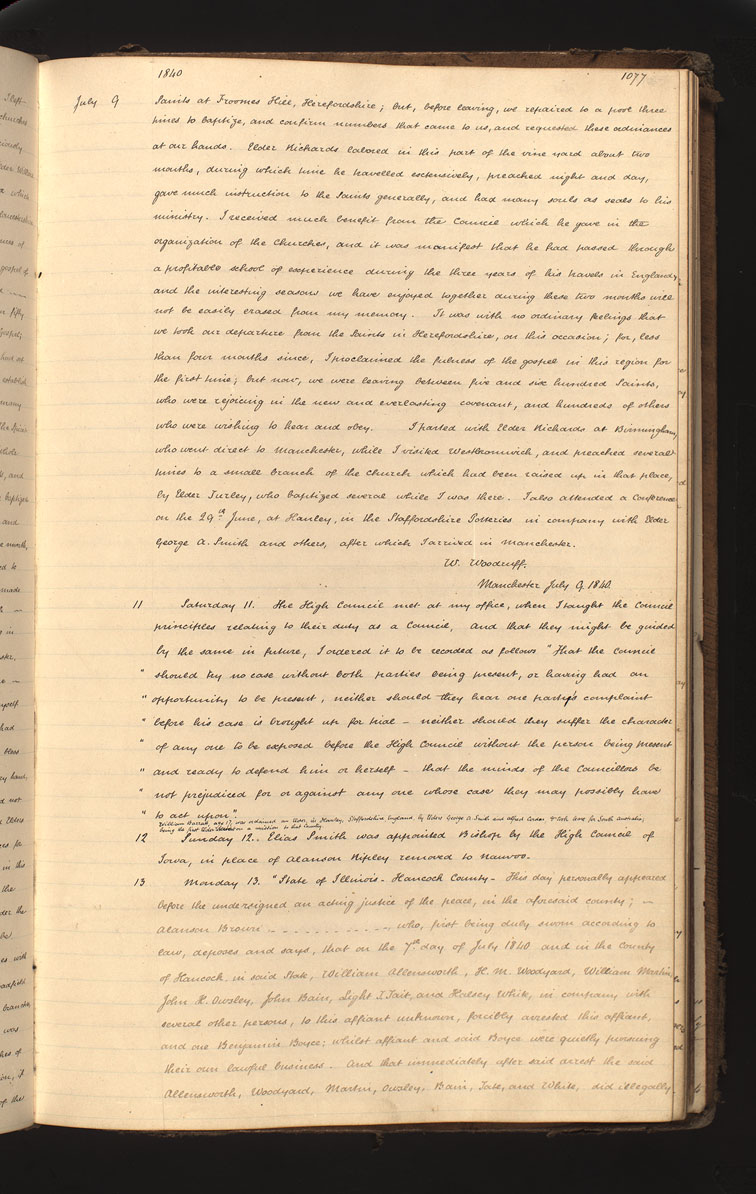 1840
1077
July 9 Saints at Froomes Hill, Herefordshire; but, before leaving, we repaired to a pool three
times to baptize, and confirm numbers that came to us, and requested these ordinances
at our hands. Elder Richards labored in this part of the vine yard about two
months, during which time he travelled extensively, preached night and day,
gave much instruction to the Saints generally, and had many souls as seals to his
ministry. I received much benefit from the Council which he gave in the
organization of the Churches, and it was manifest that he had passed through
a profitable school of experience during the three years of his travels in England,
and the interesting seasons we have enjoyed together during these two months will
not be easily erased from my memory. It was with no ordinary feelings that
we took our departure from the Saints in Herefordshire, on this occasion; for, less
than four months since, I proclaimed the fulness of the gospel in this region for
the first time; but now, we were leaving between five and six hundred Saints,
who were rejoicing in the new and everlasting covenant, and hundreds of others
who were wishing to hear and obey. I parted with Elder Richards at Birmingham,
who went direct to Manchester, while I visited Westbromwich, and preached several
times to a small branch of the church which had been raised up in that place,
by Elder Turley, who baptized several while I was there. I also attended a Conference
on the 29th June, at Hanley, in the Staffordshire Potteries in company with Elder
George A. Smith and others, after which I arrived in Manchester.
W. Woodruff.
Manchester July 9 1840.
11 Saturday 11. The High Council met at my office, when I taught the Council
principles relating to their duty as a Council, and that they might be guided
by the same in future, I ordered it to be recorded as follows "That the Council
" should try no case without both parties being present, or having had an
" opportunity to be present, neither should they hear one party's complaint
" before his case is brought up for trial – neither should they suffer the character
" of any one to be exposed before the High Council without the person being present
" and ready to defend him or herself – that the minds of the Councillors be
" not prejudiced for or against any one whose case they may possibly have
" to act upon".
William Barratt, age 17, was ordained an Elder, in Hanley, Staffordshire England, by Elders George A. Smith and Alfred Cordon & left here for South Australia,
being the first Elder on a mission to that Country
12 Sunday 12. Elias Smith was appointed Bishop by the High Council of
Iowa, in place of Alanson Ripley removed to Nauvoo.
13 Monday 13. "State of Illinois. Hancock County – This day personally appeared
before the undersigned an acting justice of the peace, in the aforesaid county; –
Alanson Brown - - - - - - - - - - - who, first being duly sworn according to
law, deposes and says, that on the 7th day of July 1840 and in the County
of Hancock in said State, William Allensworth, H. M. Woodyard, William Martin,
John H. Owsley, John Bain, Light T. Tait, and Halsey White, in company with
several other persons, to this affiant unknown, forcibly arrested this affiant,
and one Benjamin Boyce; whilst affiant and said Boyce were quietly pursuing
their own lawful business. And that immediately after said arrest the said
Allensworth, Woodyard, Martin, Owsley, Bain, Tate, and White, did illegally